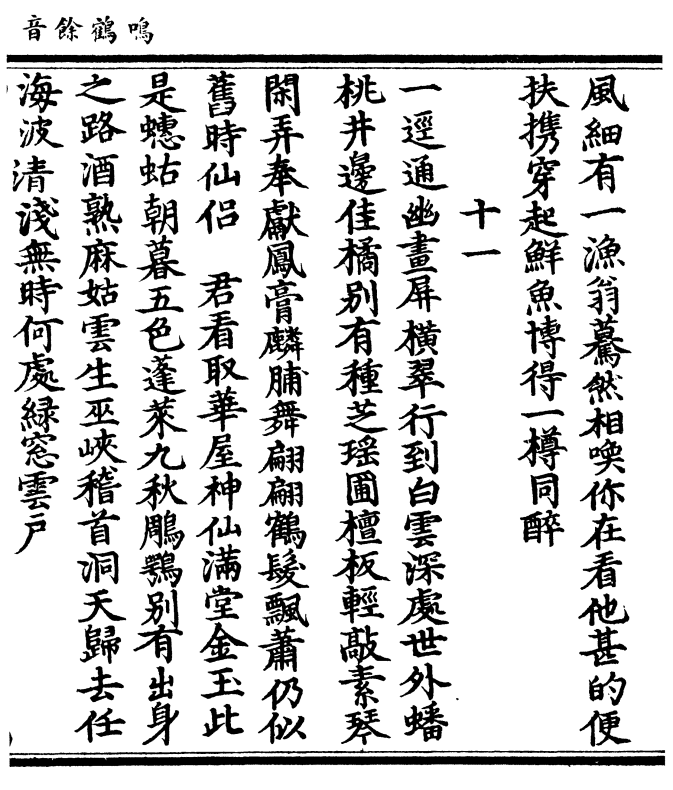 鳴鶴餘音
風細有一漁翁驀然相喚你在看他甚的便
扶攜穿起鮮魚博得一樽同醉
十一
一逕通幽畫屏橫翠行到白雲深處世外蟠
桃井邊佳橘別有種芝瑤圃檀板輕敲素琴
閑弄奉獻鳳膏麟脯舞翩翩鶴髮飄蕭仍似
舊時仙侶　君看取華屋神仙滿堂金玉此
是蟪蛄朝暮五色蓬萊九秋鵰鶚別有出身
之路酒熟麻姑雲生巫峽稽首洞天歸去任
海波清淺無時何處綠窓雲戶